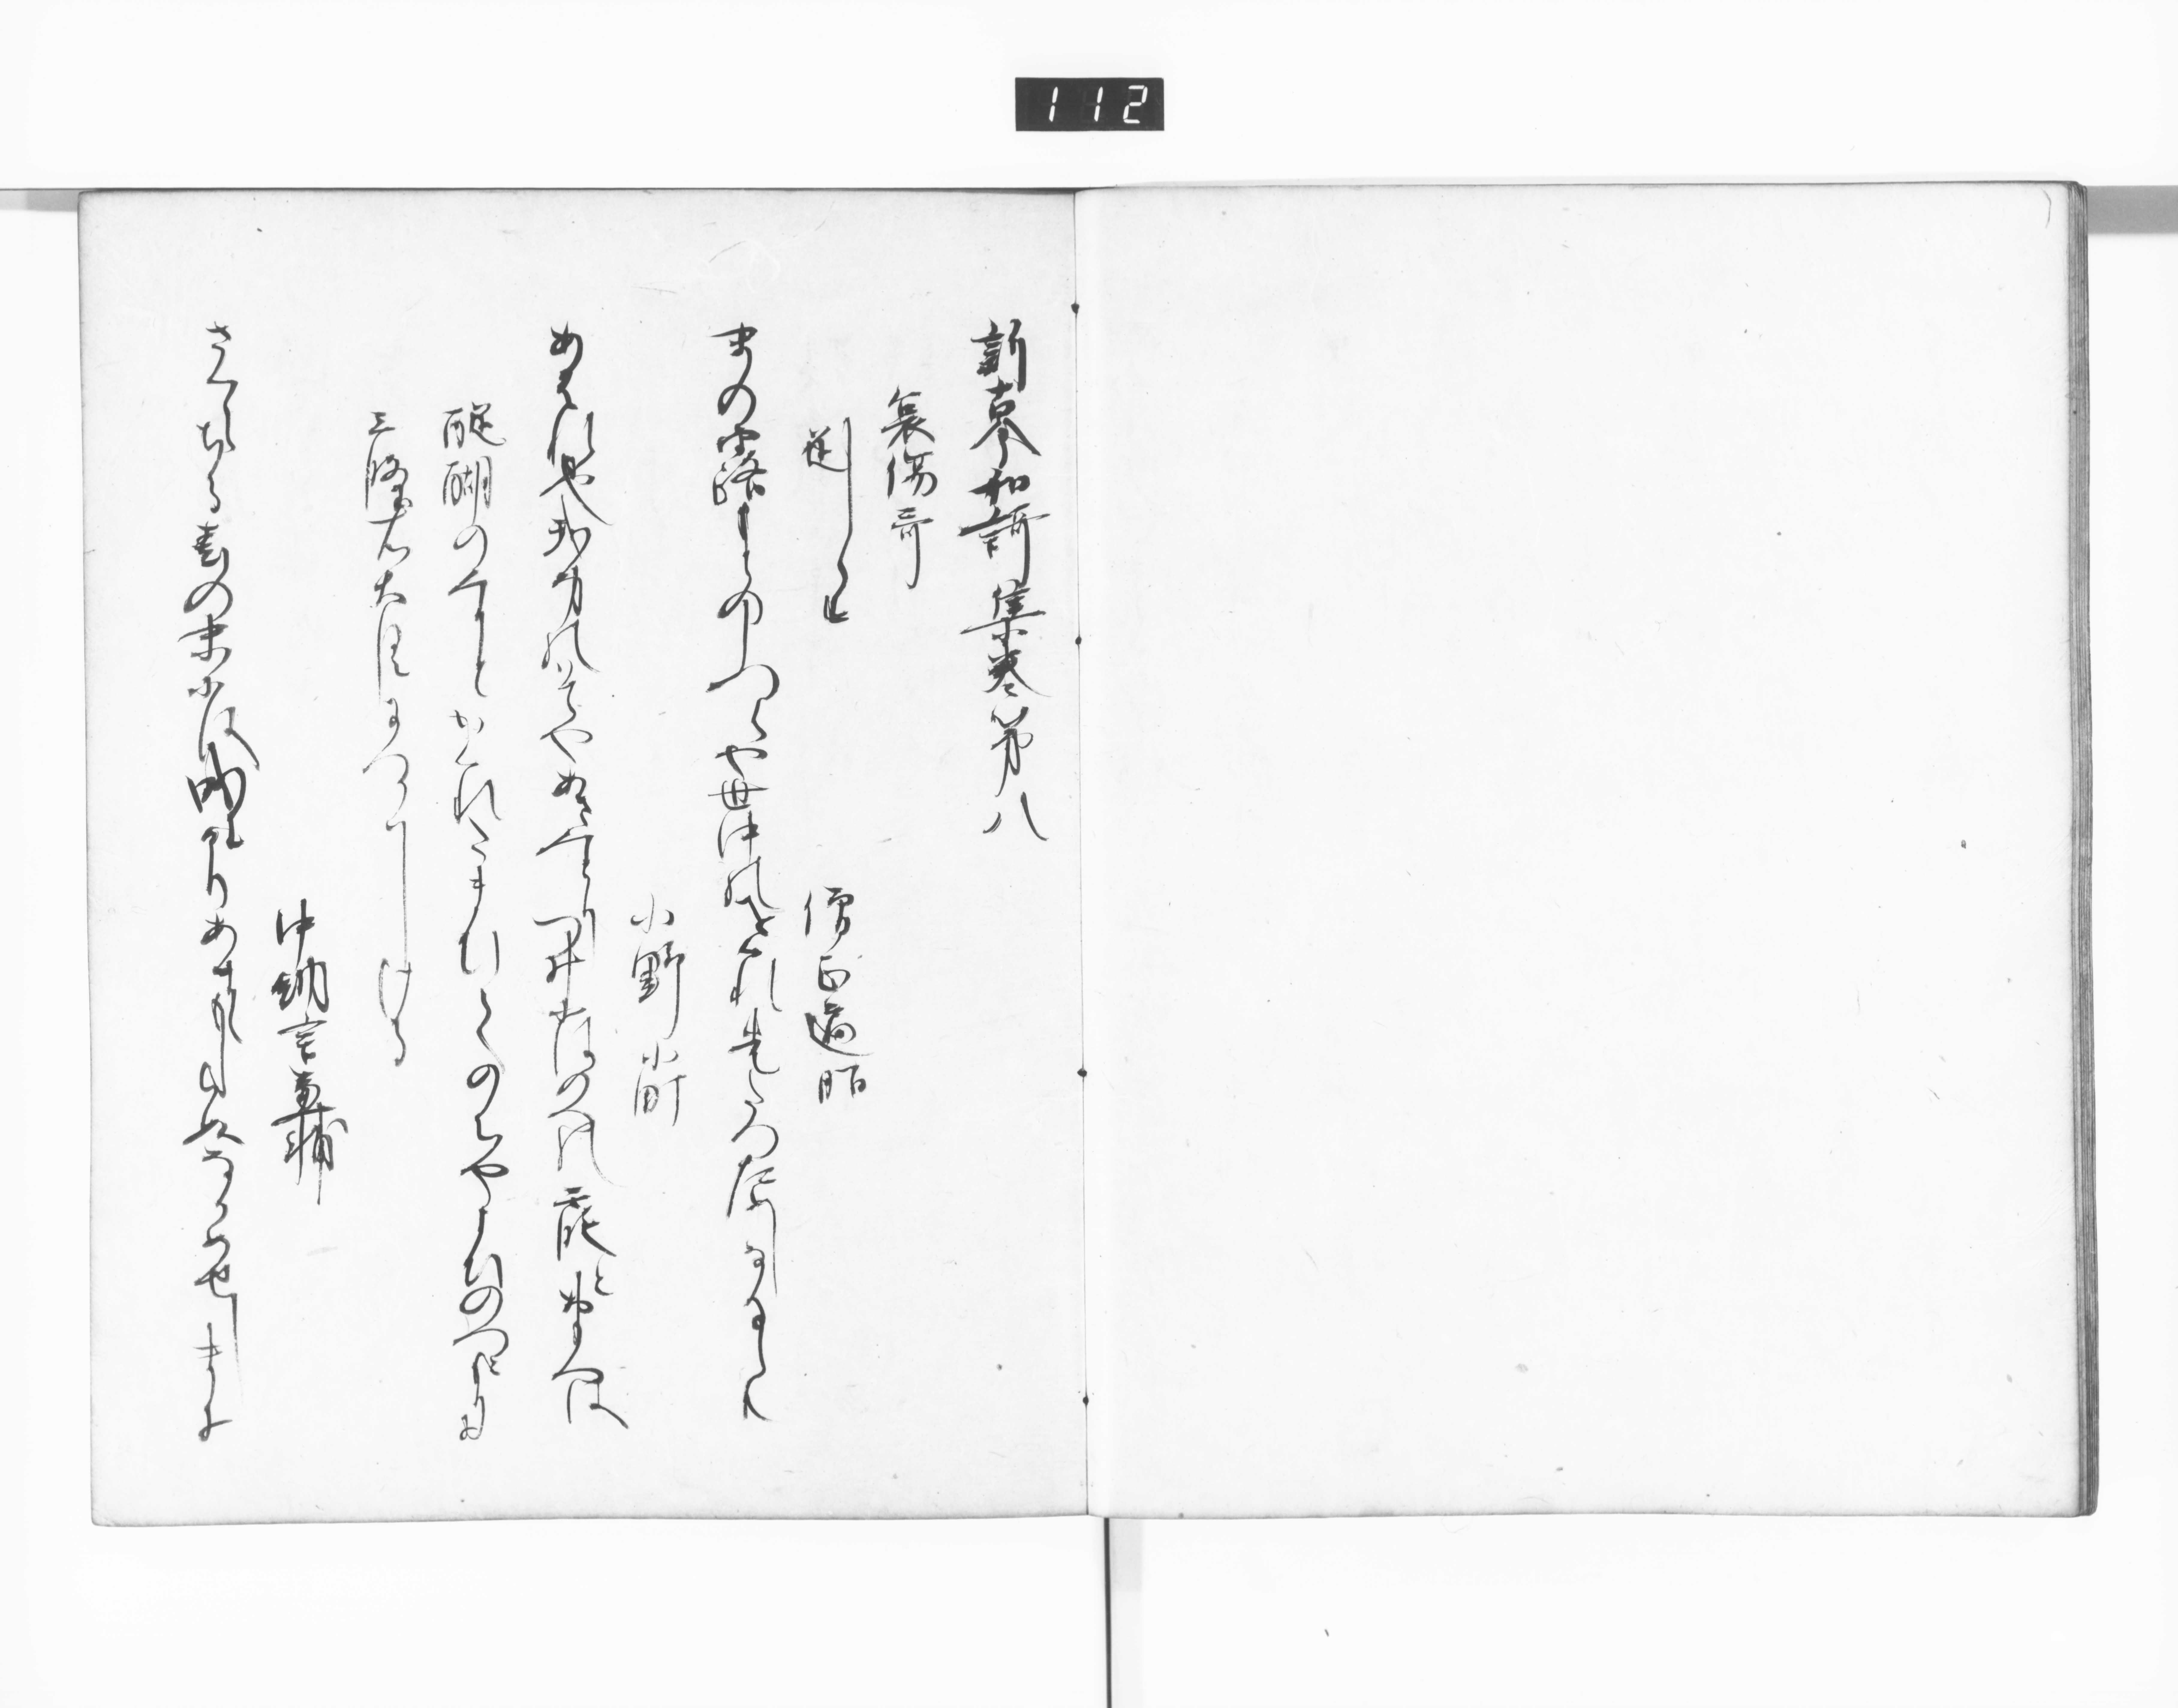 112
新古今和謌集巻第八
哀傷哥
題しらす
僧正遍昭
末の露もとのしつくや世中のをくれさきたつためしなるらん
小野小町
あはれ也我身のはてやあさみとりつゐには野への霞と思へは
醍醐のみかとかくれたまひてのちやよひのつこもりに
三條右大臣につかはしける
中納言兼輔
さくらちる春の末には成にけりあまゝもしらぬなかめせしまに